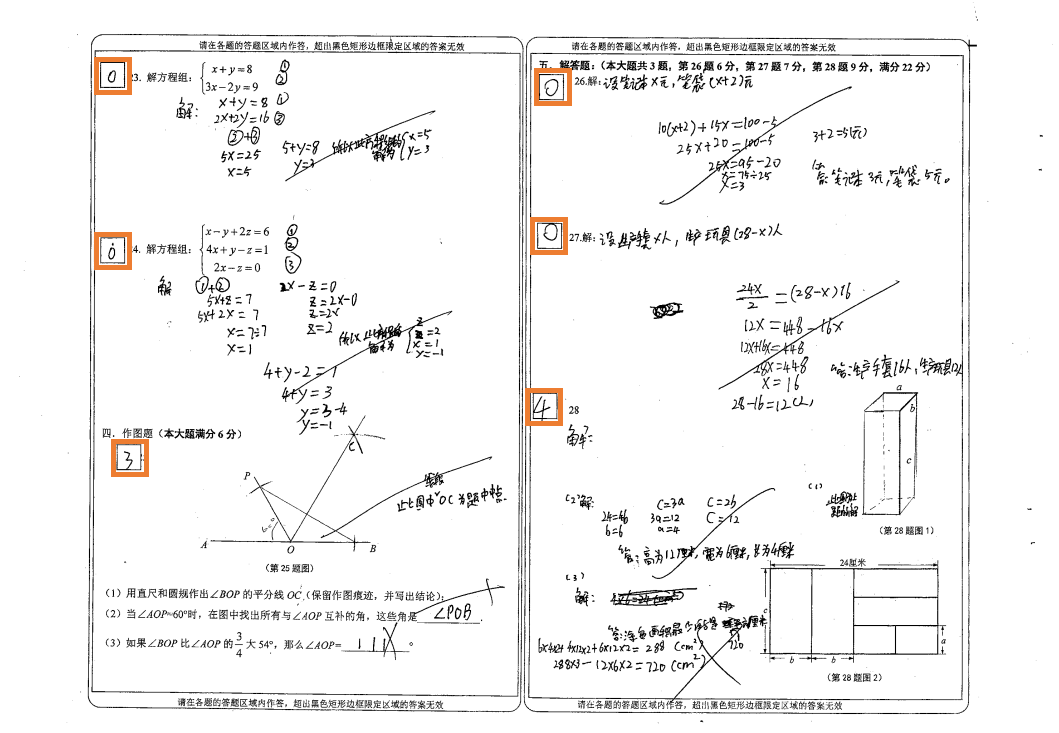 请在各题的答题区域内作答，超出黑色矩形边框限定区域的答案无效
0
23. 解方程组：
x+y=8 ①
3x−2y=9 ②
解：
x+y=8 ①
2x+2y=16 ③
②+③
5x=25
x=5
5+y=8
y=3
x=5
y=3
0
4. 解方程组：
x−y+2z=6 ①
4x+y−z=1 ②
2x−z=0 ③
解
①+②
5x+z=7
5x+2x=7
x=7÷7
x=1
2x−z=0
z=2x−0
z=2x
z=2
z=2
x=1
y=−1
4+y−2=1
4+y=3
y=3−4
y=−1
四．作图题（本大题满分6分）
3
P
C
A
O
B
此图中OC为题中
（第25题图）
（1）用直尺和圆规作出∠BOP的平分线OC（保留作图痕迹，并写出结论）；
（2）当∠AOP=60°时，在图中找出所有与∠AOP互补的角，这些角是 ∠POB
（3）如果∠BOP比∠AOP的3/4大54°，那么∠AOP= °
请在各题的答题区域内作答，超出黑色矩形边框限定区域的答案无效
请在各题的答题区域内作答，超出黑色矩形边框限定区域的答案无效
五．解答题：（本大题共3题，第26题6分，第27题7分，第28题9分，满分22分）
0
26.解：设笔记本x元，笔袋(x+2)元
10(x+2)+15x=100−5
25x+20=100−5
25x=95−20
x=75÷25
x=3
3+2=5(元)
答：笔记本3元，笔袋5元。
0
27.解：设生产手套x人，生产玩具(28−x)人
24x/2=(28−x)16
12x=448−16x
12x+16x=448
28x=448
x=16
28−16=12(人)
答：生产手套16人，生产玩具12人
4
28
解：
a
b
c
(1)
（第28题图1）
(2)解：
24=4b
b=6
c=3a
3a=12
a=4
c=2b
c=12
答：高为12厘米，宽为6厘米，长为4厘米
(3)
解：
720
6x4x2+4x12x2+6x12x2=288 (cm²)
288x3−12x6x2=720 (cm²)
24厘米
c
a
b
b
（第28题图2）
请在各题的答题区域内作答，超出黑色矩形边框限定区域的答案无效